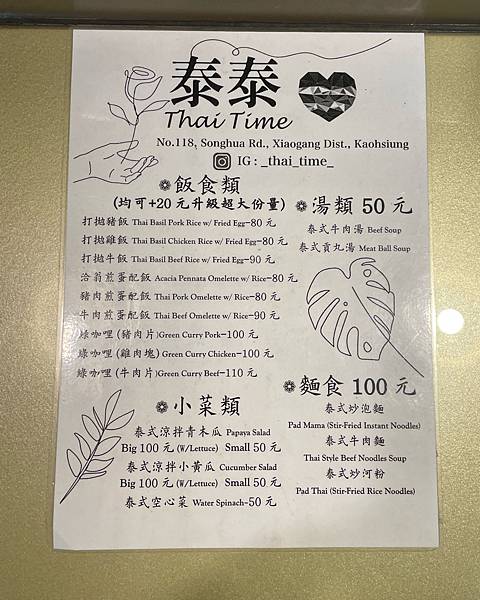 泰泰
Thai Time
No.118, Songhua Rd., Xiaogang Dist., Kaohsiung
IG : _thai_time_
飯食類
(均可+20元升級超大份量)
打拋豬飯 Thai Basil Pork Rice w/ Fried Egg-80 元
打拋雞飯 Thai Basil Chicken Rice w/ Fried Egg-80 元
打拋牛飯 Thai Basil Beef Rice w/ Fried Egg-90 元
洽翁煎蛋配飯 Acacia Pennata Omelette w/ Rice-80 元
豬肉煎蛋配飯 Thai Pork Omelette w/ Rice-80 元
牛肉煎蛋配飯 Thai Beef Omelette w/ Rice-90 元
綠咖哩 (豬肉片)Green Curry Pork-100 元
綠咖哩 (雞肉塊)Green Curry Chicken-100 元
綠咖哩 (牛肉片)Green Curry Beef-110 元
小菜類
泰式涼拌青木瓜 Papaya Salad
Big 100 元 (W/Lettuce) Small 50 元
泰式涼拌小黃瓜 Cucumber Salad
Big 100 元 (W/Lettuce) Small 50 元
泰式空心菜 Water Spinach-50 元
湯類 50 元
泰式牛肉湯 Beef Soup
泰式貢丸湯 Meat Ball Soup
麵食 100 元
泰式炒泡麵
Pad Mama (Stir-Fried Instant Noodles)
泰式牛肉麵
Thai Style Beef Noodles Soup
泰式炒河粉
Pad Thai (Stir-Fried Rice Noodles)